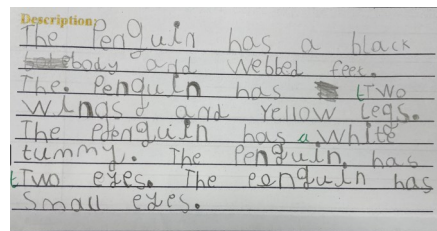 Description:
The Penguin has a black
body and webbed feet.
The. Penguin has tTwo
wings and Yellow Legs.
The penguin has a white
tummy. The Penguin. has
tTwo eyes. The penguin has
Small eyes.